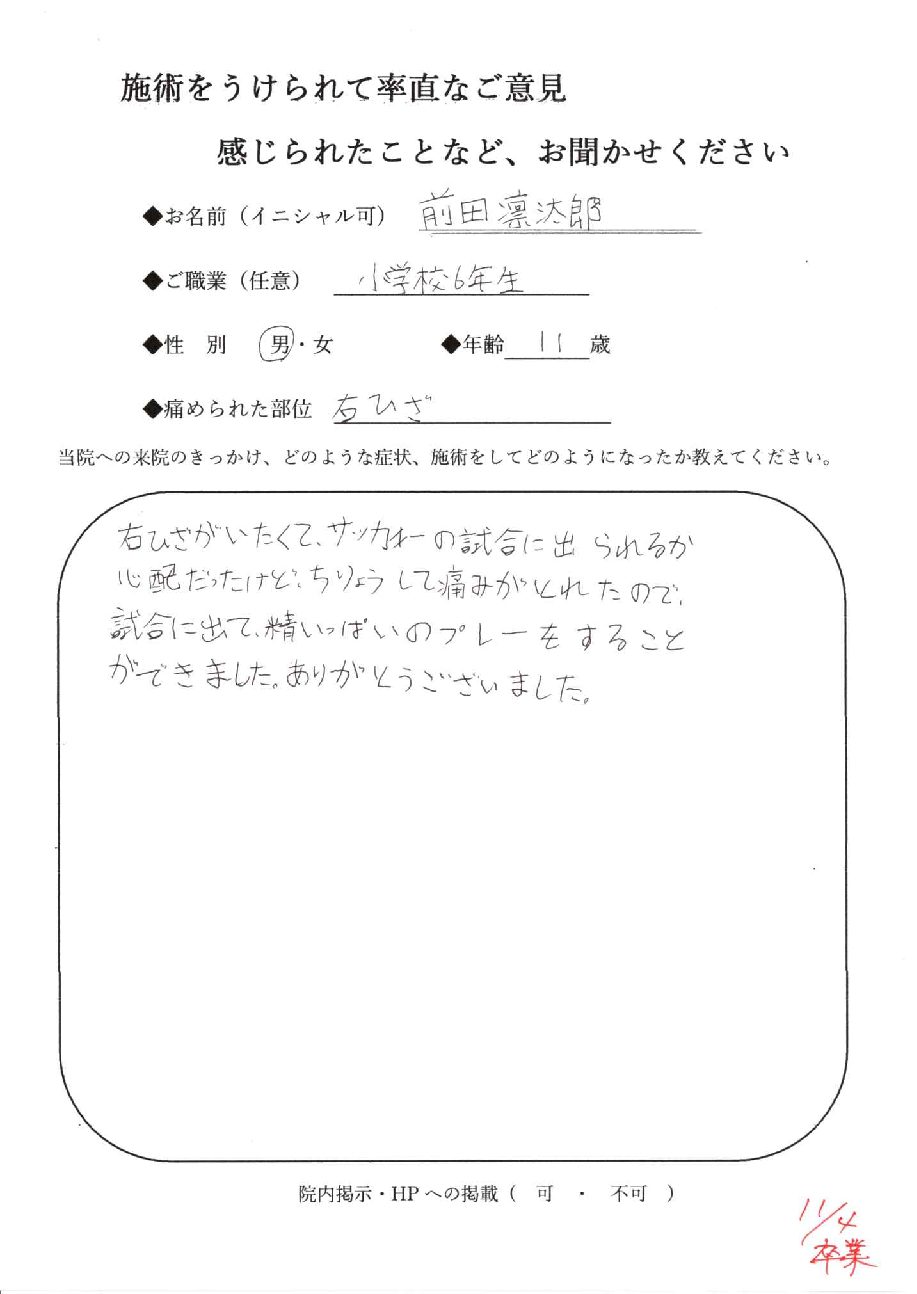 施術をうけられて率直なご意見
感じられたことなど、お聞かせください
◆お名前（イニシャル可） 前田凛汰郎
◆ご職業（任意） 小学校6年生
◆性 別 男・女 ◆年齢 11 歳
◆痛められた部位 右ひざ
当院への来院のきっかけ、どのような症状、施術をしてどのようになったか教えてください。
右ひざがいたくて、サッカーの試合に出られるか
心配だったけど、ちりょうして痛みがとれたので、
試合に出て、精いっぱいのプレーをすること
ができました。ありがとうございました。
院内掲示・HPへの掲載（ 可 ・ 不可 ）
11/4
卒業